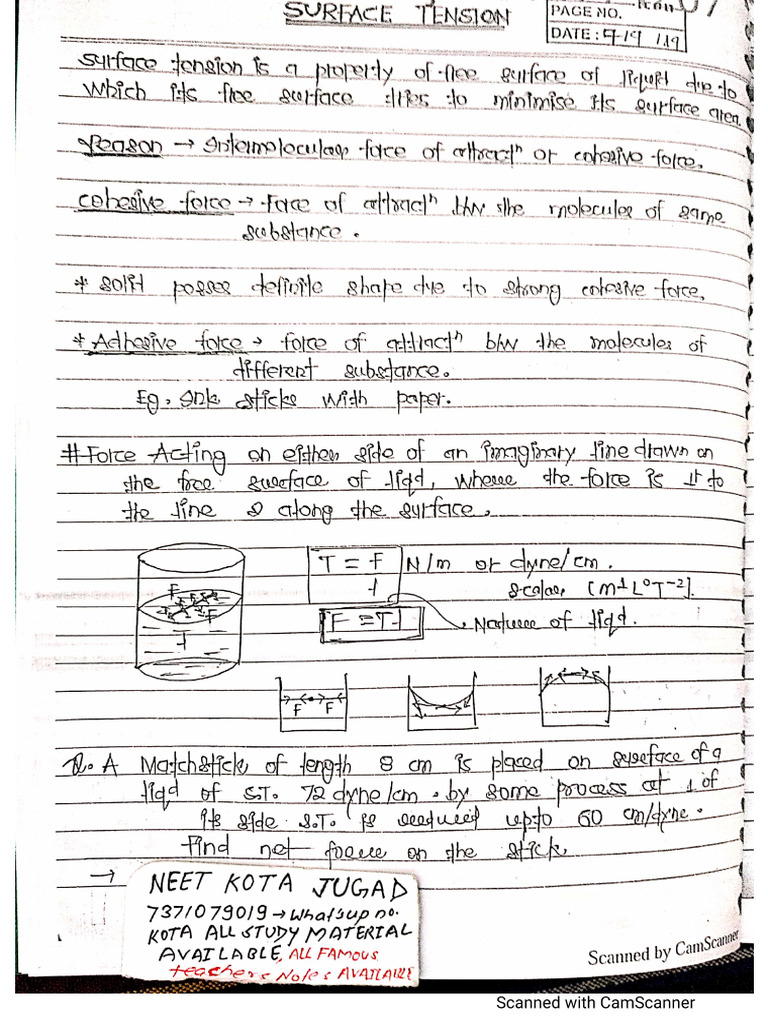 SURFACE TENSION
PAGE NO.
DATE :
Surface tension is a property of free surface of liquid due to
which its free surface tries to minimise its surface area.
Reason → Intermolecular force of attractⁿ or cohesive force.
cohesive force → force of attractⁿ b/w the molecules of same
substance.
* Solid posses definite shape due to strong cohesive force.
* Adhesive force → force of attractⁿ b/w the molecules of
different substance.
Eg, Ink sticks with paper.
# Force Acting on either side of an imaginary line drawn on
the free surface of liqd, where the force is ⊥r to
the line & along the surface.
T = F/l N/m or dyne/cm.
scalar, [M¹L⁰T⁻²].
F = T·l
Nature of liqd.
F F
l
F F
Q. A Matchstick of length 8 cm is placed on surface of a
liqd of S.T. 72 dyne/cm. by some process at 1 of
its side S.T. is reduced upto 60 cm/dyne.
find net force on the stick
→
NEET KOTA JUGAD
7371079019 → Whatsup no.
KOTA ALL STUDY MATERIAL
AVAILABLE, ALL FAMOUS
teachers Notes AVAILABLE
Scanned by CamScanner
Scanned with CamScanner